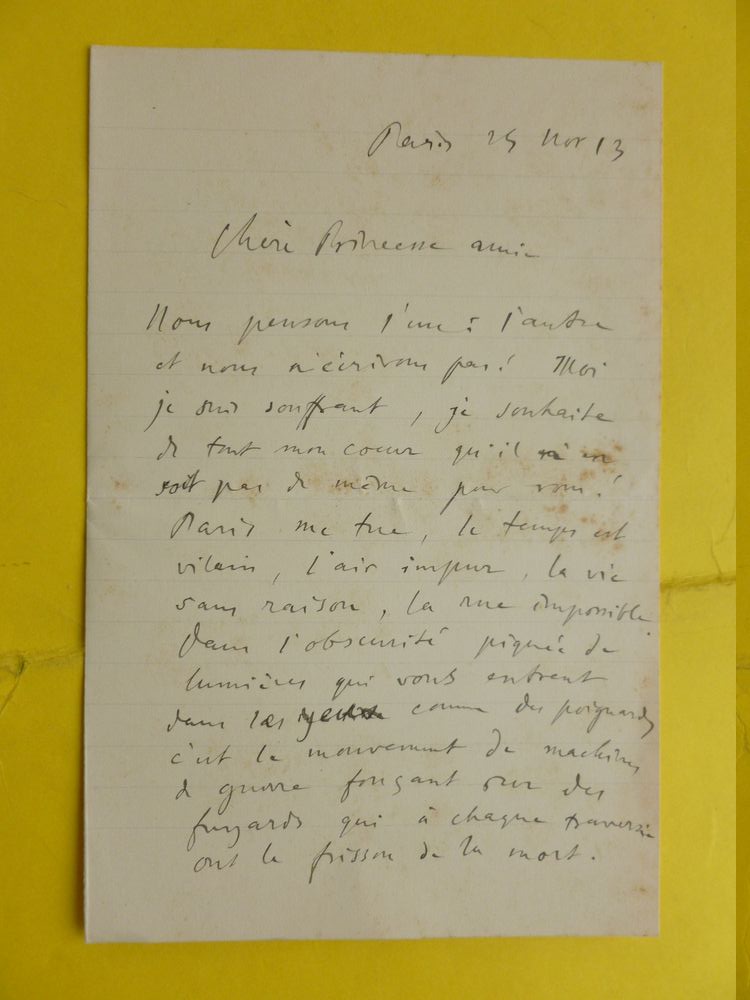 Paris 25 Nov 13
Chère Princesse amie
Nous pensons l'une à l'autre
et nous n'écrivons pas! Moi
je suis souffrant, je souhaite
de tout mon coeur qu'il n'en
soit pas de même pour vous!
Paris me tue, le temps est
vilain, l'air impur, la vie
sans raison, la rue impossible.
Dans l'obscurité piquée de
lumières qui vous entrent
dans les yeux comme des poignards
c'est le mouvement de machines
de guerre fonçant sur des
fuyards qui à chaque traversée
ont le frisson de la mort.